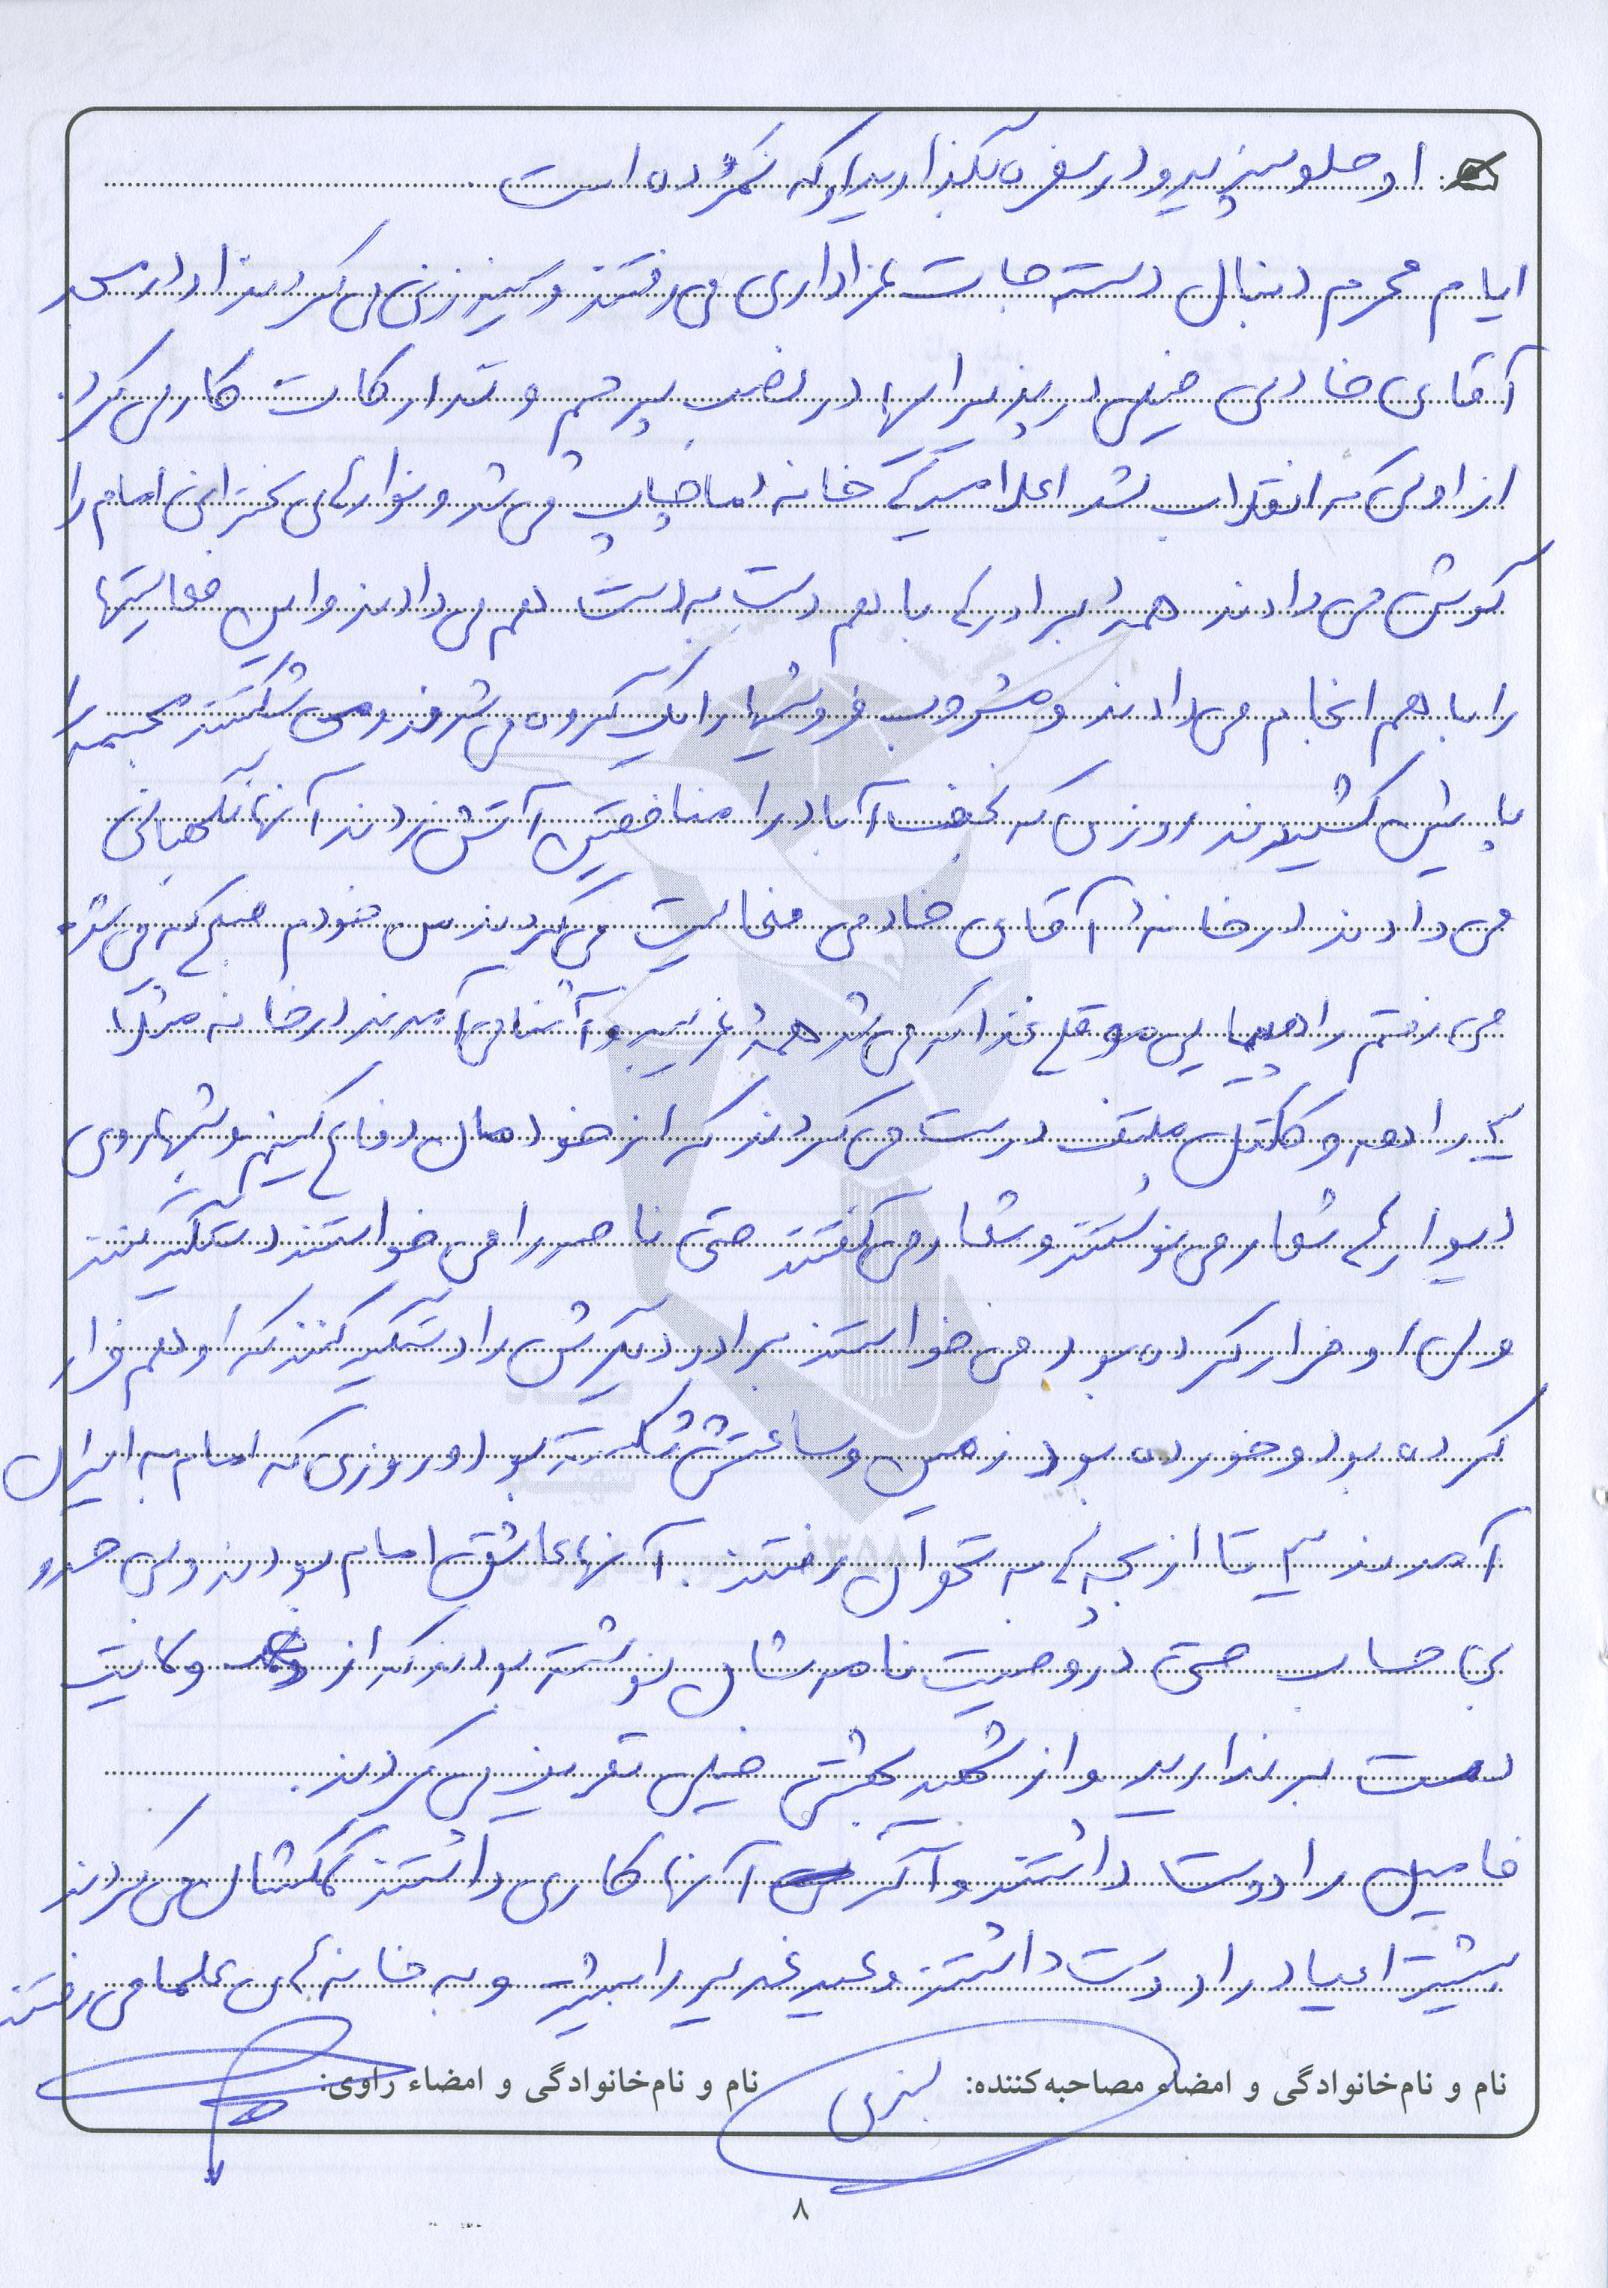 او حلو بپزید و در سفره نگذارید او که نمرده است
ایام محرم دنبال دسته جات عزاداری می رفتند و سینه زنی می کردند او در مسجد
آقای خادمی خیلی در پذیراییها در نصب پرچم و تدارکات کار می کرد.
از اولی که انقلاب شد اعلامیه ها خانه ما چاپ می شد و نوارهای سخنرانی امام را
گوش می دادند همه برادرها با هم دست به دست هم می دادند و این فعالیتها
را با هم انجام می دادند و مشروب فروشیها را یک گروه می شدند و می شکستند مجسمه را
پایین کشیدند روزی که نجف آباد را منافقین آتش زدند آنها نگهبانی
می دادند در خانه آقای خادمی فعالیت می کردند من خودم صبح که می شد
می رفتم راهپیمایی موقع غذا که می شد همه غریب و آشنا می آمدند در خانه مثلا
سه راهه و کوکتل ملتف درست می کردند که از خودمان دفاع کنیم و شبها روی
دیوارها شعار می نوشتند و شعار می گفتند حتی ناصر را می خواستند دستگیر کنند
ولی او فرار کرده بود می خواستند برادر دیگرش را دستگیر کنند که او هم فرار
کرده بود و خورده بود زمین و ساعتش شکسته بود و روزی که امام به ایران
آمدند ۳ تا از بچه ها به تهران رفتند. آنها عاشق امام بودند ولی حدو
بی حساب حتی در وصیت نامه شان نوشته بودند که از ولایت
دست برندارید و از شهید بهشتی خیلی تعریف می کردند.
فامیل را دوست داشتند و اگر آنها کاری داشتند کمکشان می کردند
بیشتر اعیاد را دوست داشتند و عید غدیر را بیشتر و به خانه های علما می رفتند
نام و نام‌خانوادگی و امضاء مصاحبه‌کننده: نام و نام‌خانوادگی و امضاء راوی:
۸